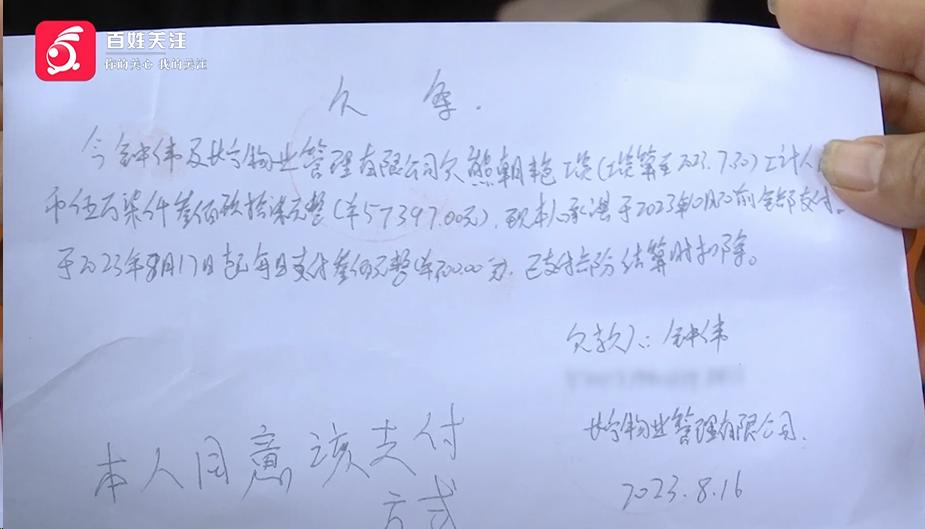 百姓关注
你的关心 我的关注
欠 条.
今钟伟及长宁物业管理有限公司欠熊朝艳工资(工资算至2023.7.30)上计人
币伍万柒仟叁佰玖拾柒元整(¥57397.00元),现本人承诺于2023年10月30前全部支付。
于2023年8月17日起每日支付叁佰元整(¥300.00元.已支付部份结算时扣除。
欠款人:钟伟
长宁物业管理有限公司.
2023.8.16
本人同意该支付
方式